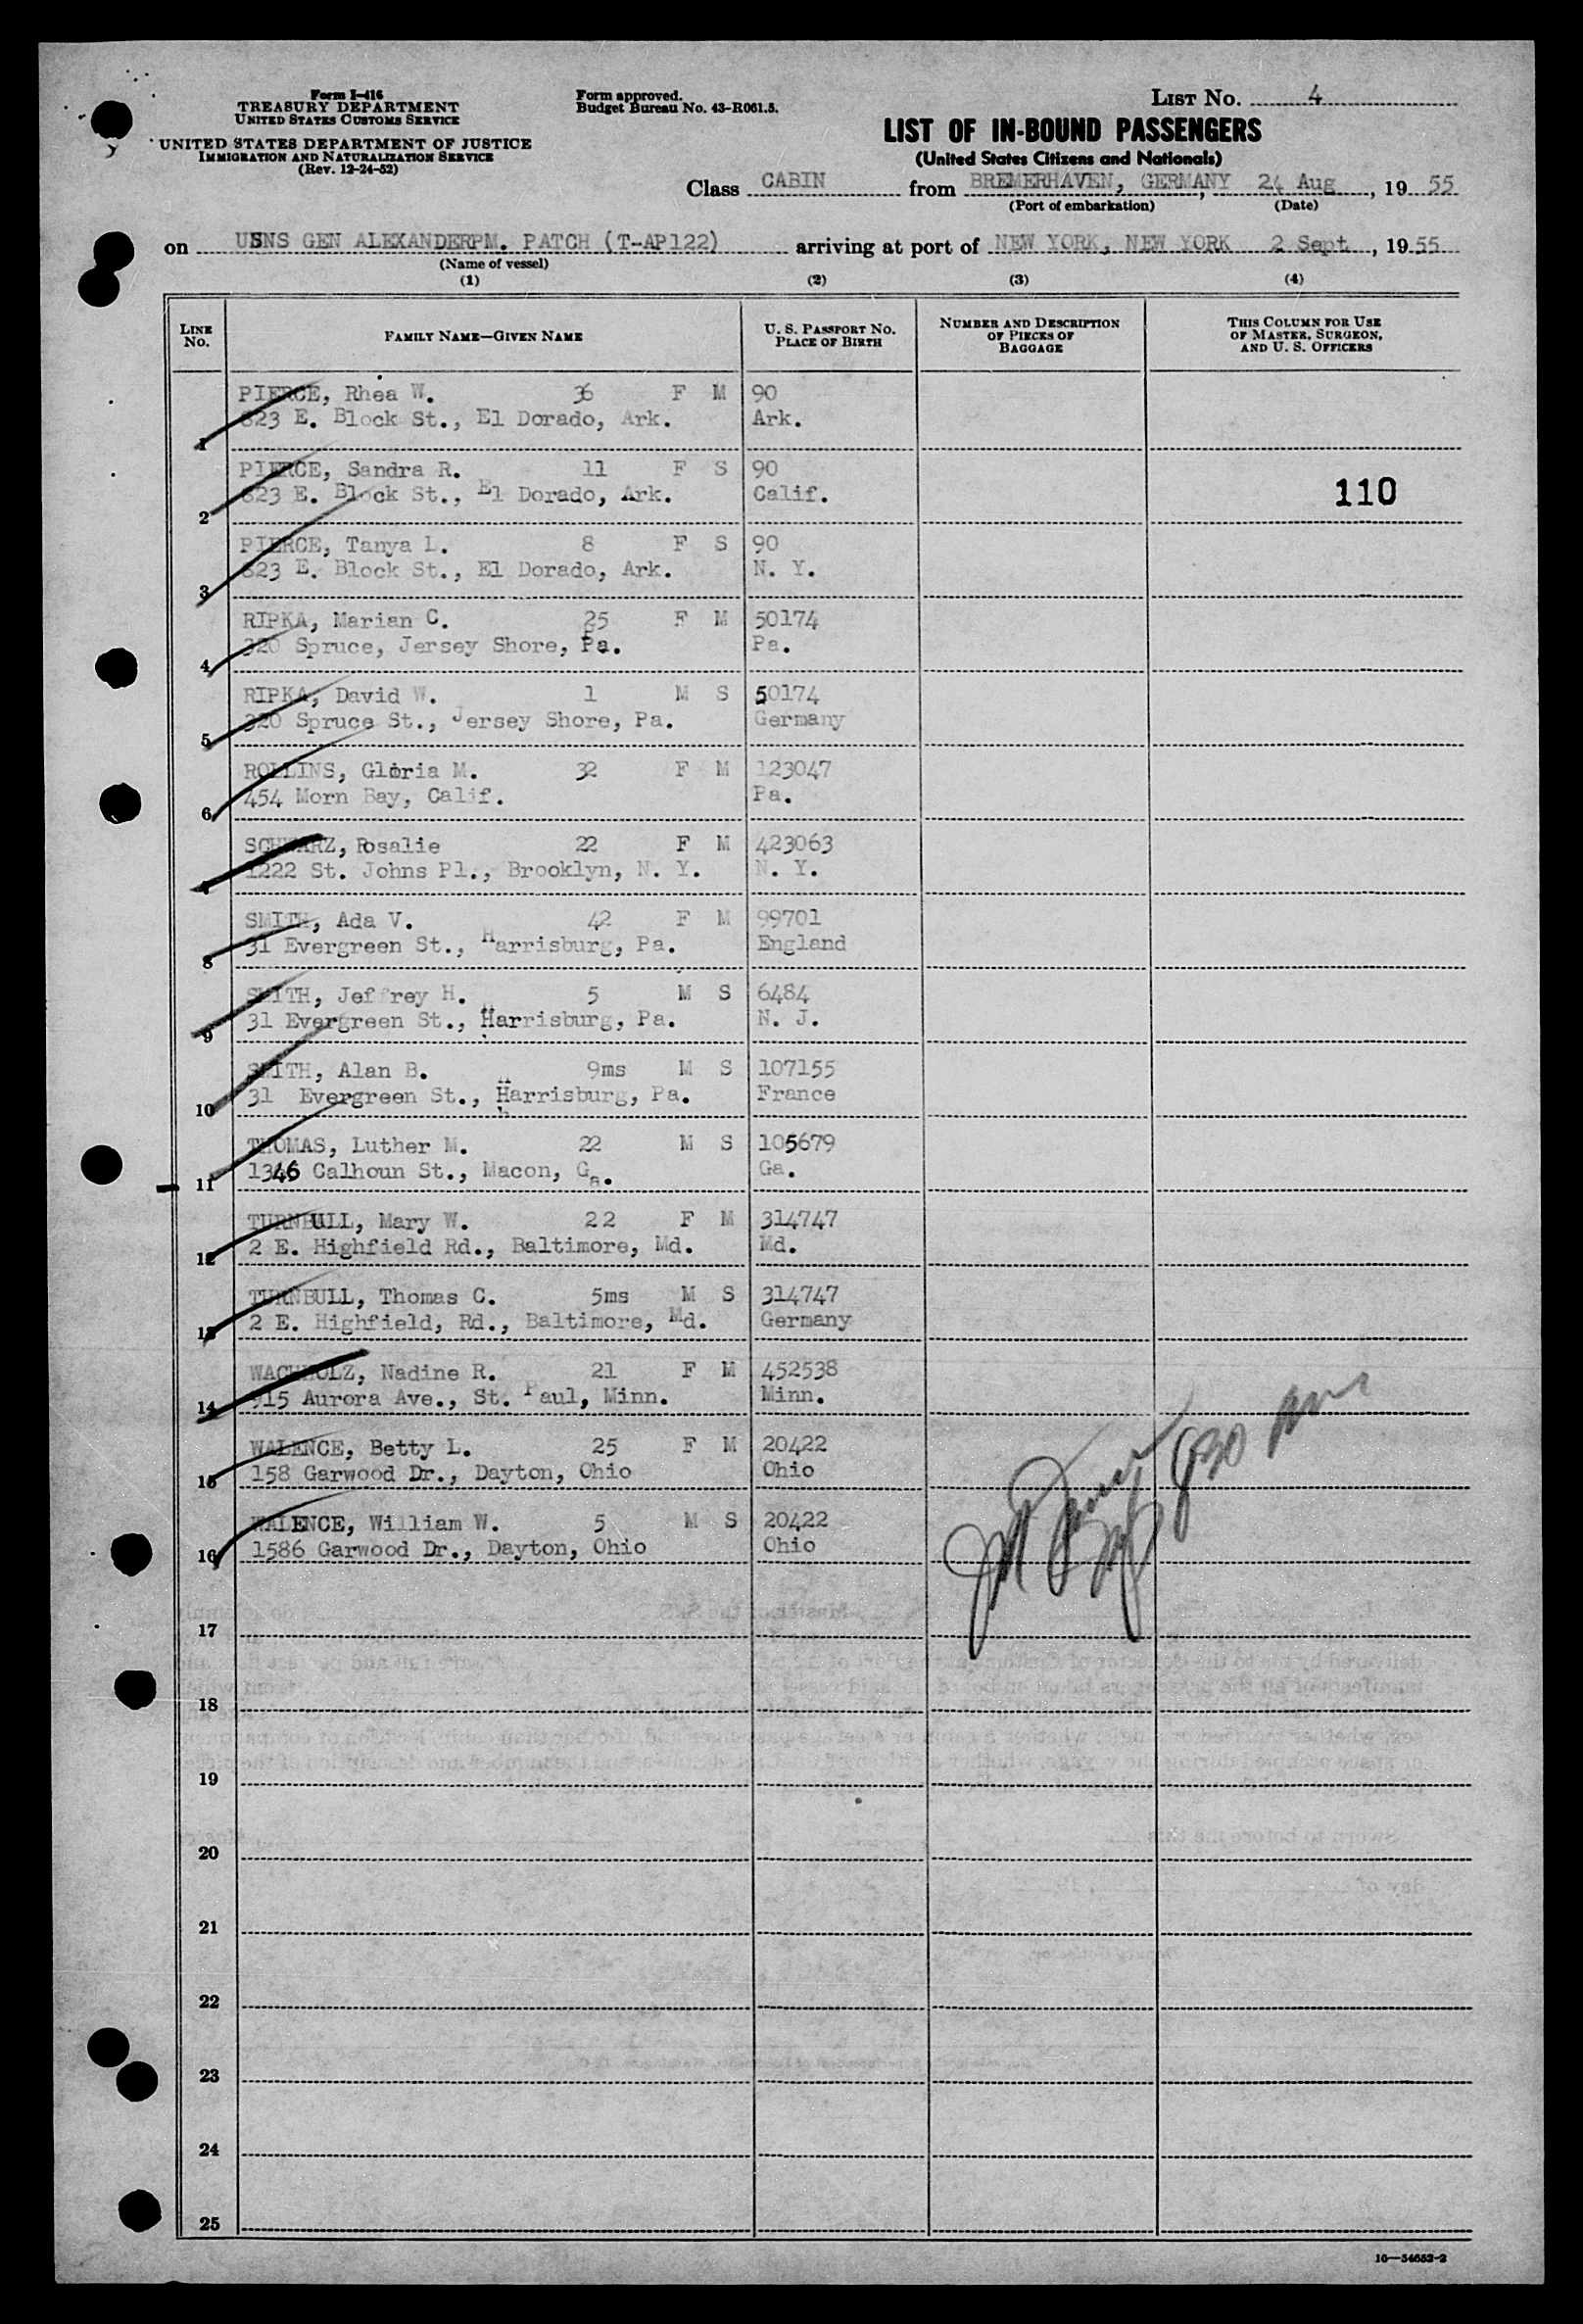 Form I-416
TREASURY DEPARTMENT
UNITED STATES CUSTOMS SERVICE
UNITED STATES DEPARTMENT OF JUSTICE
IMMIGRATION AND NATURALIZATION SERVICE
(Rev. 12-24-52)
Form approved.
Budget Bureau No. 43-R061.5.
LIST No. 4
LIST OF IN-BOUND PASSENGERS
(United States Citizens and Nationals)
Class CABIN from BREMERHAVEN, GERMANY, 24 Aug, 1955
(Port of embarkation) (Date)
on USNS GEN ALEXANDER M. PATCH (T-AP122) arriving at port of NEW YORK, NEW YORK 2 Sept, 1955
(Name of vessel)
(1) (2) (3) (4)
LINE No. FAMILY NAME—GIVEN NAME U. S. PASSPORT NO. PLACE OF BIRTH NUMBER AND DESCRIPTION OF PIECES OF BAGGAGE THIS COLUMN FOR USE OF MASTER, SURGEON, AND U. S. OFFICERS
PIERCE, Rhea W. 36 F M 90
1 823 E. Block St., El Dorado, Ark. Ark.
PIERCE, Sandra R. 11 F S 90
2 823 E. Block St., El Dorado, Ark. Calif. 110
PIERCE, Tanya L. 8 F S 90
3 823 E. Block St., El Dorado, Ark. N. Y.
RIPKA, Marian C. 25 F M 50174
4 320 Spruce, Jersey Shore, Pa. Pa.
RIPKA, David W. 1 M S 50174
5 320 Spruce St., Jersey Shore, Pa. Germany
ROLLINS, Gloria M. 32 F M 123047
6 454 Morn Bay, Calif. Pa.
SCHWARZ, Rosalie 22 F M 423063
7 1222 St. Johns Pl., Brooklyn, N. Y. N. Y.
SMITH, Ada V. 42 F M 99701
8 31 Evergreen St., Harrisburg, Pa. England
SMITH, Jeffrey H. 5 M S 6484
9 31 Evergreen St., Harrisburg, Pa. N. J.
SMITH, Alan B. 9ms M S 107155
10 31 Evergreen St., Harrisburg, Pa. France
THOMAS, Luther M. 22 M S 105679
11 1346 Calhoun St., Macon, Ga. Ga.
TURNBULL, Mary W. 22 F M 314747
12 2 E. Highfield Rd., Baltimore, Md. Md.
TURNBULL, Thomas C. 5ms M S 314747
13 2 E. Highfield, Rd., Baltimore, Md. Germany
WACHHOLZ, Nadine R. 21 F M 452538
14 915 Aurora Ave., St. Paul, Minn. Minn.
WALENCE, Betty L. 25 F M 20422
15 158 Garwood Dr., Dayton, Ohio Ohio
WALENCE, William W. 5 M S 20422
16 1586 Garwood Dr., Dayton, Ohio Ohio
17
18
19
20
21
22
23
24
25
16—54652-2